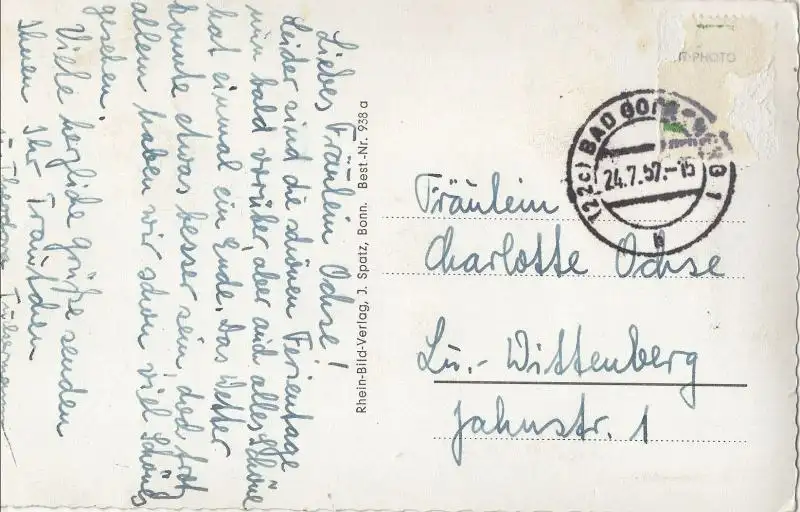 Liebes Fräulein Ochse!
Leider sind die schönen Ferientage
nun bald vorüber, aber auch alles Schöne
hat einmal ein Ende. Das Wetter
könnte etwas besser sein, doch trotz
allem haben wir schon viel Schönes
gesehen.
Viele herzliche Grüße senden
Ihnen Ihr Trautchen
u. Theodora
Rhein-Bild-Verlag, J. Spatz, Bonn. Best.-Nr. 938 a
PHOTO
(22c) BAD GODESBERG 1
24.7.57.-15
a
Fräulein
Charlotte Ochse
Lu.-Wittenberg
Jahnstr. 1